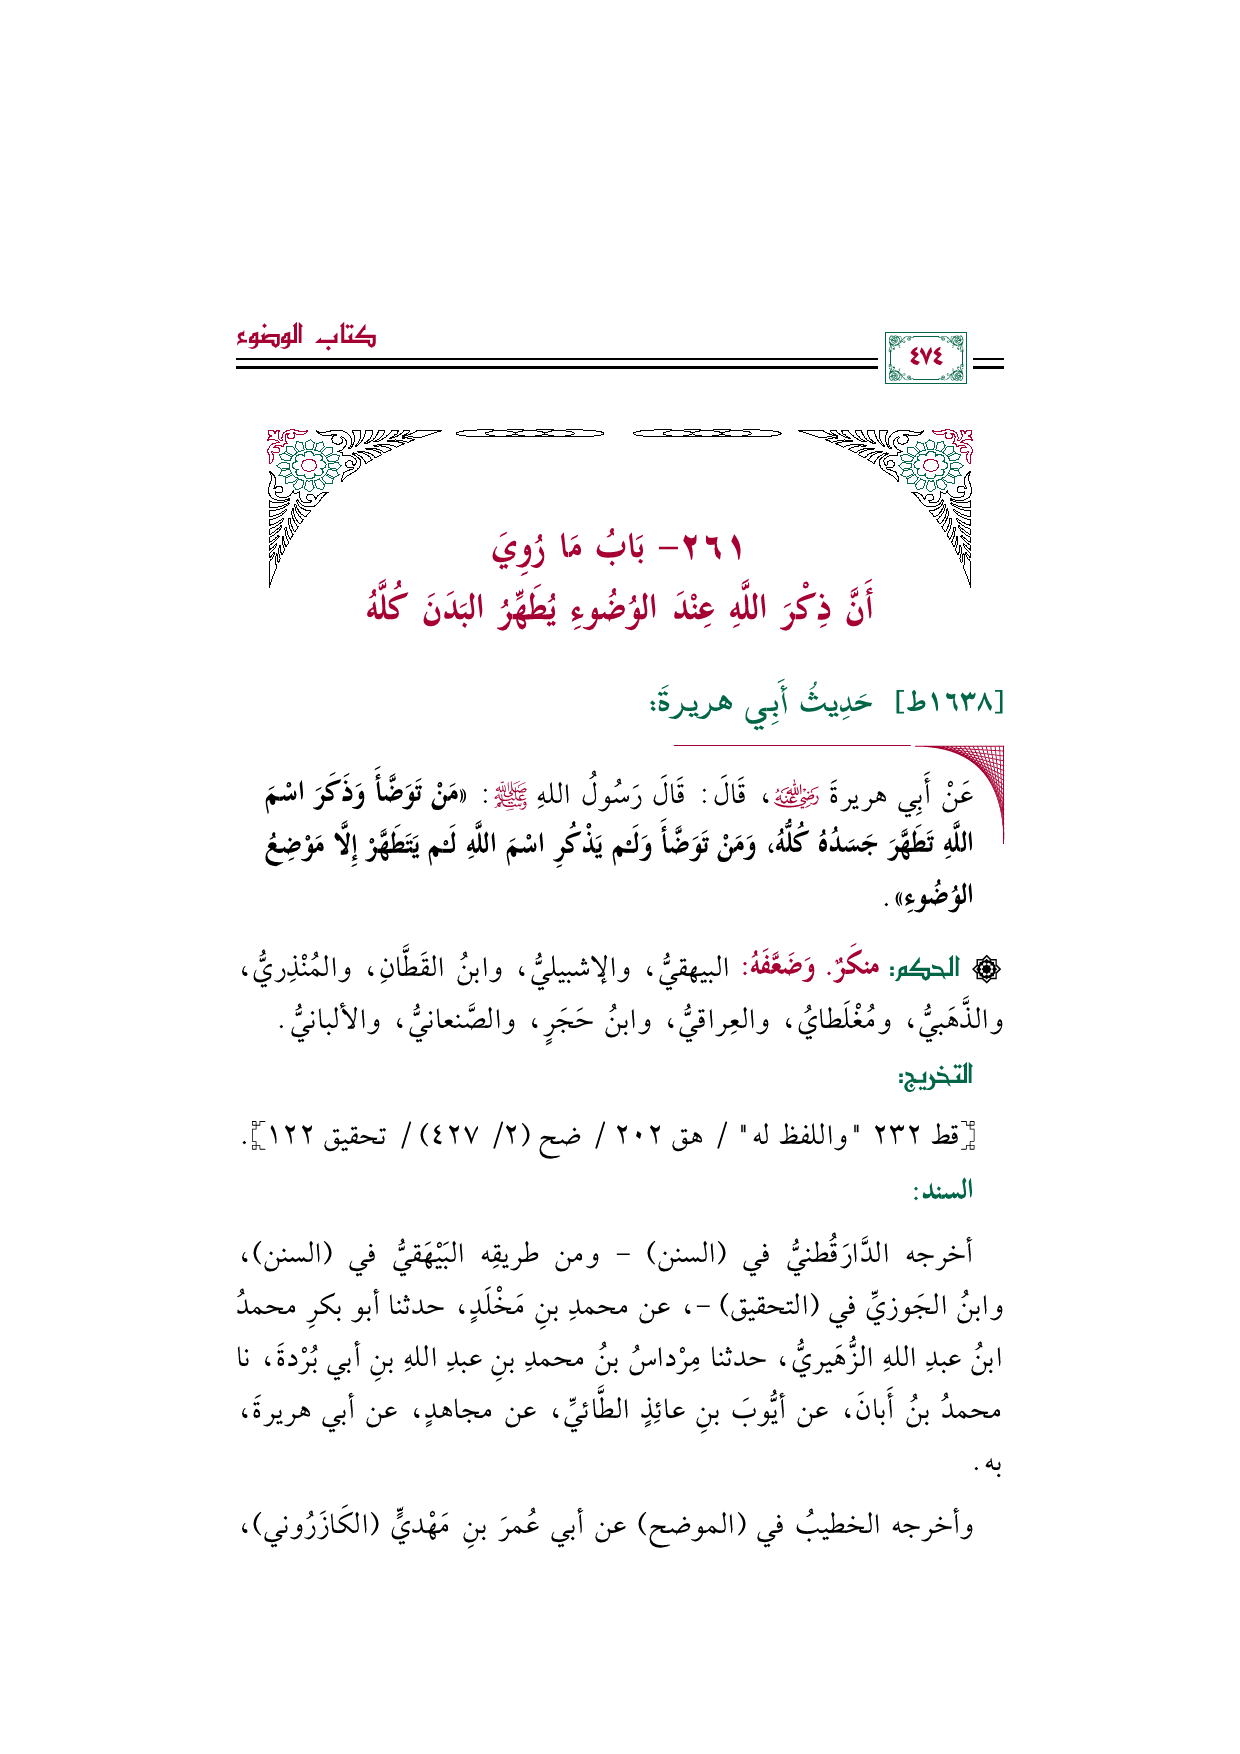 كتاب الوضوء
٤٧٤
٢٦١- بَابُ مَا رُوِيَ
أَنَّ ذِكْرَ اللَّهِ عِنْدَ الوُضُوءِ يُطَهِّرُ البَدَنَ كُلَّهُ
[١٦٣٨ط] حَدِيثُ أَبِي هريرةَ:
عَنْ أَبِي هريرةَ رضي الله عنه، قَالَ: قَالَ رَسُولُ اللهِ ﷺ: «مَنْ تَوَضَّأَ وَذَكَرَ اسْمَ
اللَّهِ تَطَهَّرَ جَسَدُهُ كُلُّهُ، وَمَنْ تَوَضَّأَ وَلَـم يَذْكُرِ اسْمَ اللَّهِ لَـم يَتَطَهَّرْ إِلَّا مَوْضِعُ
الوُضُوءِ».
الحكم: منكَرٌ. وَضَعَّفَهُ: البيهقيُّ، والإشبيليُّ، وابنُ القَطَّانِ، والمُنْذِريُّ،
والذَّهَبيُّ، ومُغْلَطايُ، والعِراقيُّ، وابنُ حَجَرٍ، والصَّنعانيُّ، والألبانيُّ.
التخريج:
[قط ٢٣٢ "واللفظ له" / هق ٢٠٢ / ضح (٢/ ٤٢٧) / تحقيق ١٢٢].
السند:
أخرجه الدَّارَقُطنيُّ في (السنن) - ومن طريقِه البَيْهَقيُّ في (السنن)،
وابنُ الجَوزيِّ في (التحقيق) -، عن محمدِ بنِ مَخْلَدٍ، حدثنا أبو بكرِ محمدُ
ابنُ عبدِ اللهِ الزُّهَيريُّ، حدثنا مِرْداسُ بنُ محمدِ بنِ عبدِ اللهِ بنِ أبي بُرْدةَ، نا
محمدُ بنُ أَبانَ، عن أيُّوبَ بنِ عائِذٍ الطَّائيِّ، عن مجاهدٍ، عن أبي هريرةَ،
به.
وأخرجه الخطيبُ في (الموضح) عن أبي عُمرَ بنِ مَهْديٍّ (الكَازَرُوني)،